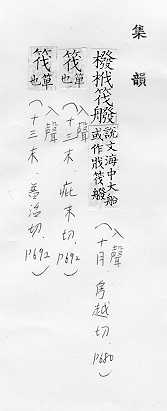 集韻
橃栰筏䑔說文海中大船或作栰筏䑔
（入聲十月．房越切．P680）
筏箄也
（入聲十三末．北末切．P692）
筏箄也
（入聲十三末．蒲活切．P692）